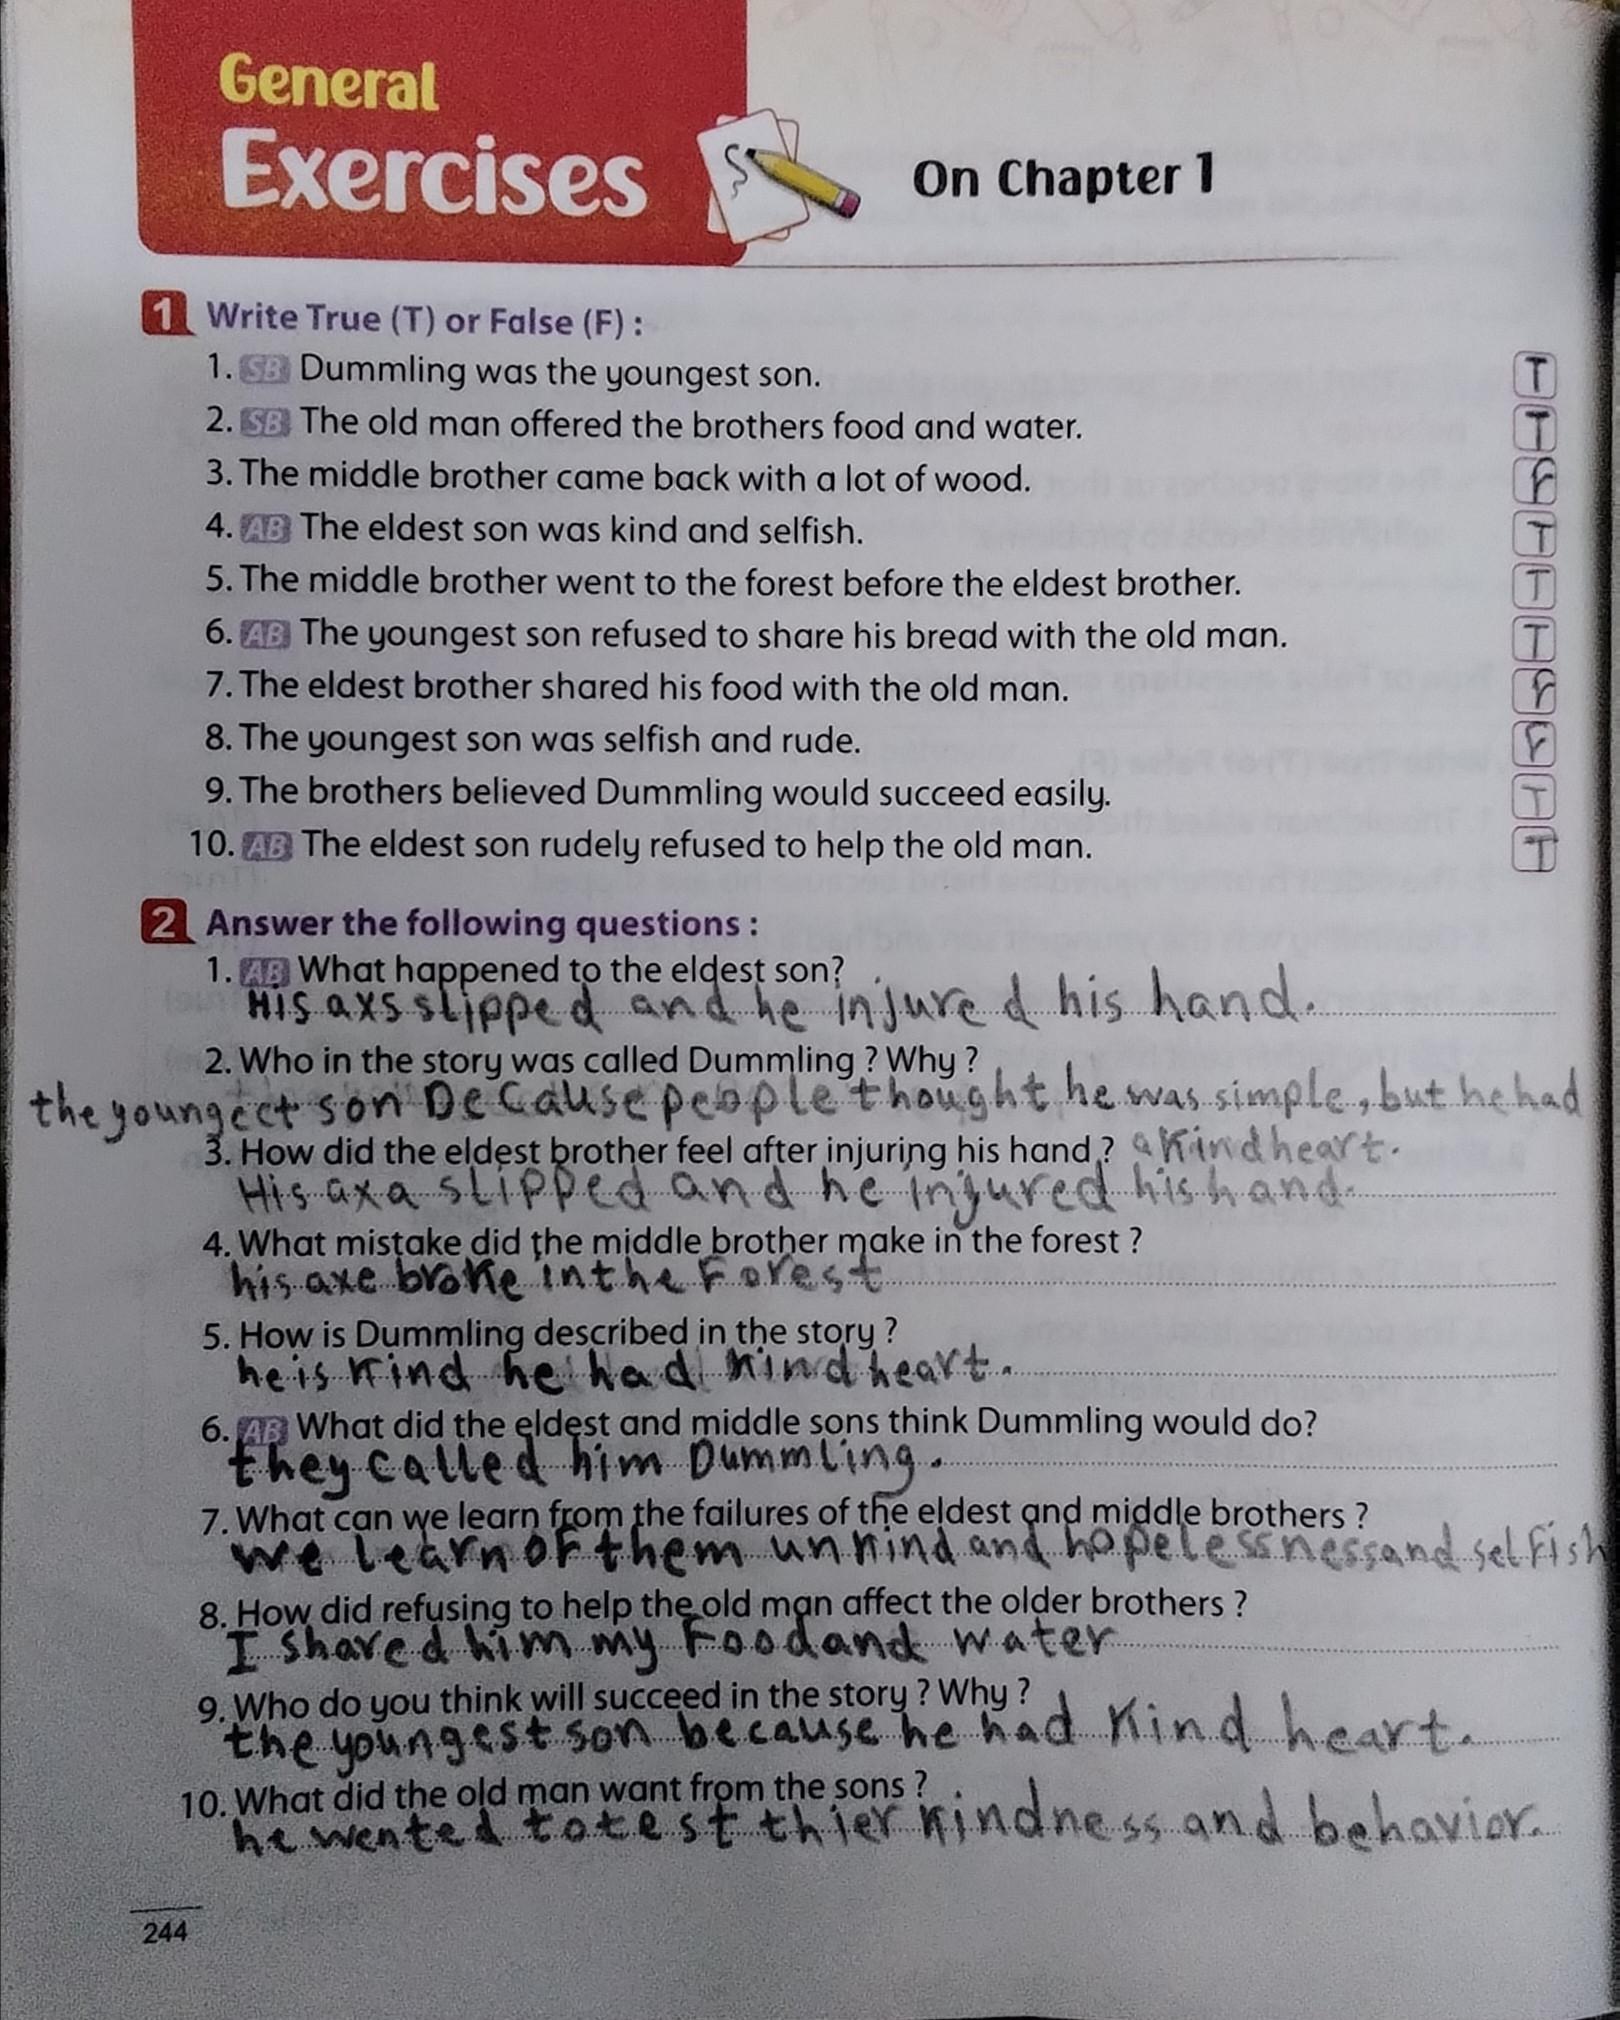 General
Exercises
On Chapter 1
1 Write True (T) or False (F) :
1. SB Dummling was the youngest son. T
2. SB The old man offered the brothers food and water. T
3. The middle brother came back with a lot of wood. F
4. AB The eldest son was kind and selfish. T
5. The middle brother went to the forest before the eldest brother. T
6. AB The youngest son refused to share his bread with the old man. T
7. The eldest brother shared his food with the old man. F
8. The youngest son was selfish and rude. F
9. The brothers believed Dummling would succeed easily. T
10. AB The eldest son rudely refused to help the old man. T
2 Answer the following questions :
1. AB What happened to the eldest son?
His axs slipped and he injured his hand.
2. Who in the story was called Dummling ? Why ?
the youngect son Because people thought he was simple, but he had
3. How did the eldest brother feel after injuring his hand ? a Kind heart.
His axa slipped and he injured his hand.
4. What mistake did the middle brother make in the forest ?
his axe broke in the Forest
5. How is Dummling described in the story ?
he is Kind he had kind heart.
6. AB What did the eldest and middle sons think Dummling would do?
they called him Dummling.
7. What can we learn from the failures of the eldest and middle brothers ?
we learn of them unkind and hopelessness and selfish
8. How did refusing to help the old man affect the older brothers ?
I shared him my Food and water
9. Who do you think will succeed in the story ? Why ?
the youngest son because he had Kind heart.
10. What did the old man want from the sons ?
he wented to test thier kindness and behavior.
244